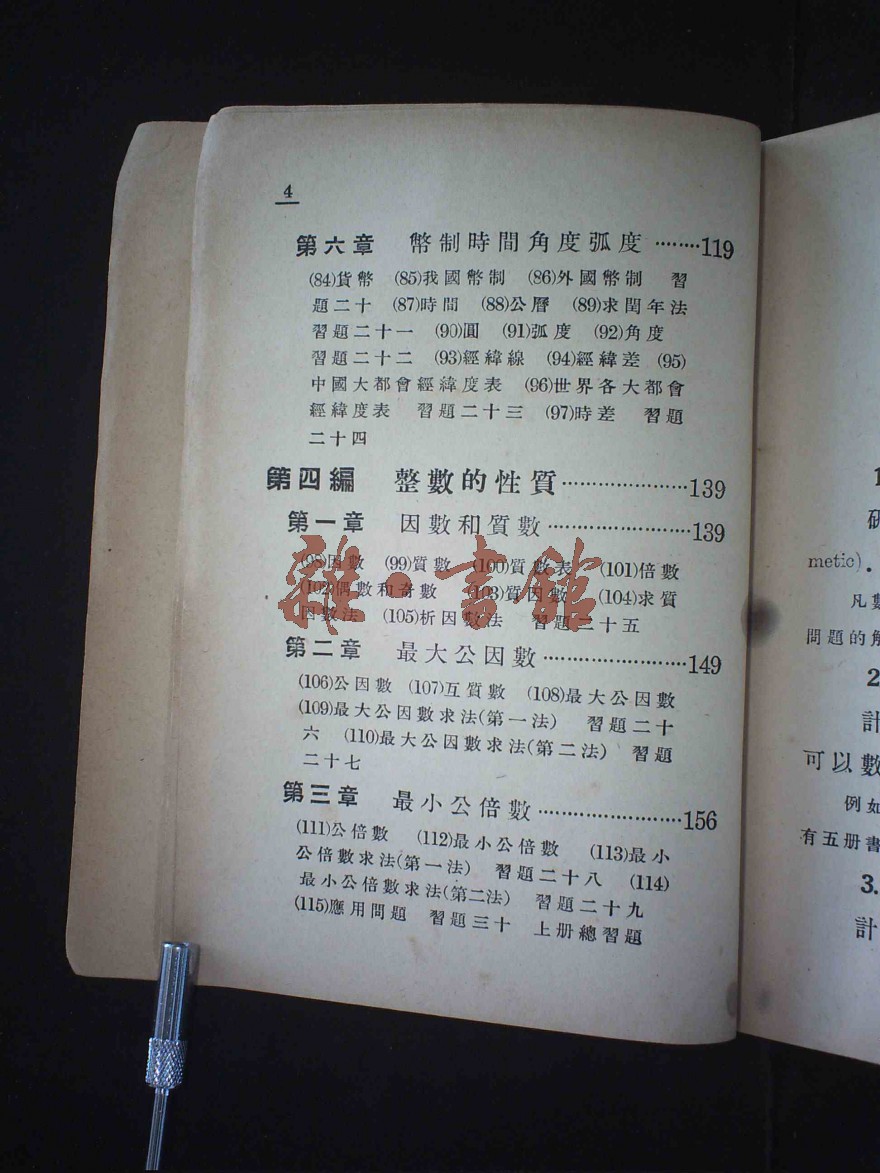 4
第六章 幣制時間角度弧度········119
(84)貨幣 (85)我國幣制 (86)外國幣制 習
題二十 (87)時間 (88)公曆 (89)求閏年法
習題二十一 (90)圓 (91)弧度 (92)角度
習題二十二 (93)經緯線 (94)經緯差 (95)
中國大都會經緯度表 (96)世界各大都會
經緯度表 習題二十三 (97)時差 習題
二十四
第四編 整數的性質·····················139
第一章 因數和質數························139
(98)因數 (99)質數 (100)質數表 (101)倍數
(102)偶數和奇數 (103)質因數 (104)求質
因數法 (105)析因數法 習題二十五
第二章 最大公因數························149
(106)公因數 (107)互質數 (108)最大公因數
(109)最大公因數求法(第一法) 習題二十
六 (110)最大公因數求法(第二法) 習題
二十七
第三章 最小公倍數························156
(111)公倍數 (112)最小公倍數 (113)最小
公倍數求法(第一法) 習題二十八 (114)
最小公倍數求法(第二法) 習題二十九
(115)應用問題 習題三十 上册總習題
雜·書館
1
研
metic).
凡數
問題的解
2
計
可以數
例如
有五册書
3.
計